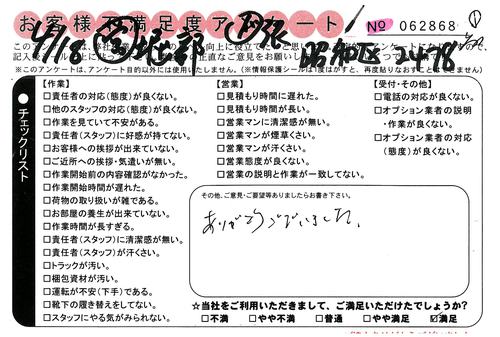 お客様不満足度アンケート
№ 062868 ①
4/18
昭和区
このアンケートは、弊社
※このアンケートは、アンケート目的以外には使用いたしません。(※情報保護シールは1度はがすと、再度貼りなおすことができません。)
チェックリスト
【作業】
□責任者の対応(態度)が良くない。
□他のスタッフの対応(態度)が良くない。
□作業を見ていて不安がある。
□責任者(スタッフ)に好感が持てない。
□お客様への挨拶が出来ていない。
□ご近所への挨拶・気遣いが無い。
□作業開始前の内容確認がなかった。
□作業開始時間が遅れた。
□荷物の取り扱いが雑である。
□お部屋の養生が出来ていない。
□作業時間が長すぎる。
□責任者(スタッフ)に清潔感が無い。
□責任者(スタッフ)が汗くさい。
□トラックが汚い。
□梱包資材が汚い。
□運転が不安(下手)である。
□靴下の履き替えをしてない。
□スタッフにやる気がみられない。
【営業】
□見積もり時間に遅れた。
□見積もり時間が長い。
□営業マンに清潔感が無い。
□営業マンが煙草くさい。
□営業マンが汗くさい。
□営業態度が良くない。
□営業の説明と作業が一致してない。
【受付・その他】
□電話の対応が良くない。
□オプション業者の説明
・作業が良くない。
□オプション業者の対応
(態度)が良くない。
その他、ご意見・ご要望等ありましたらお書き下さい。
ありがとうございました。
☆当社をご利用いただきまして、ご満足いただけたでしょうか?
□不満 □やや不満 □普通 □やや満足 ☑満足